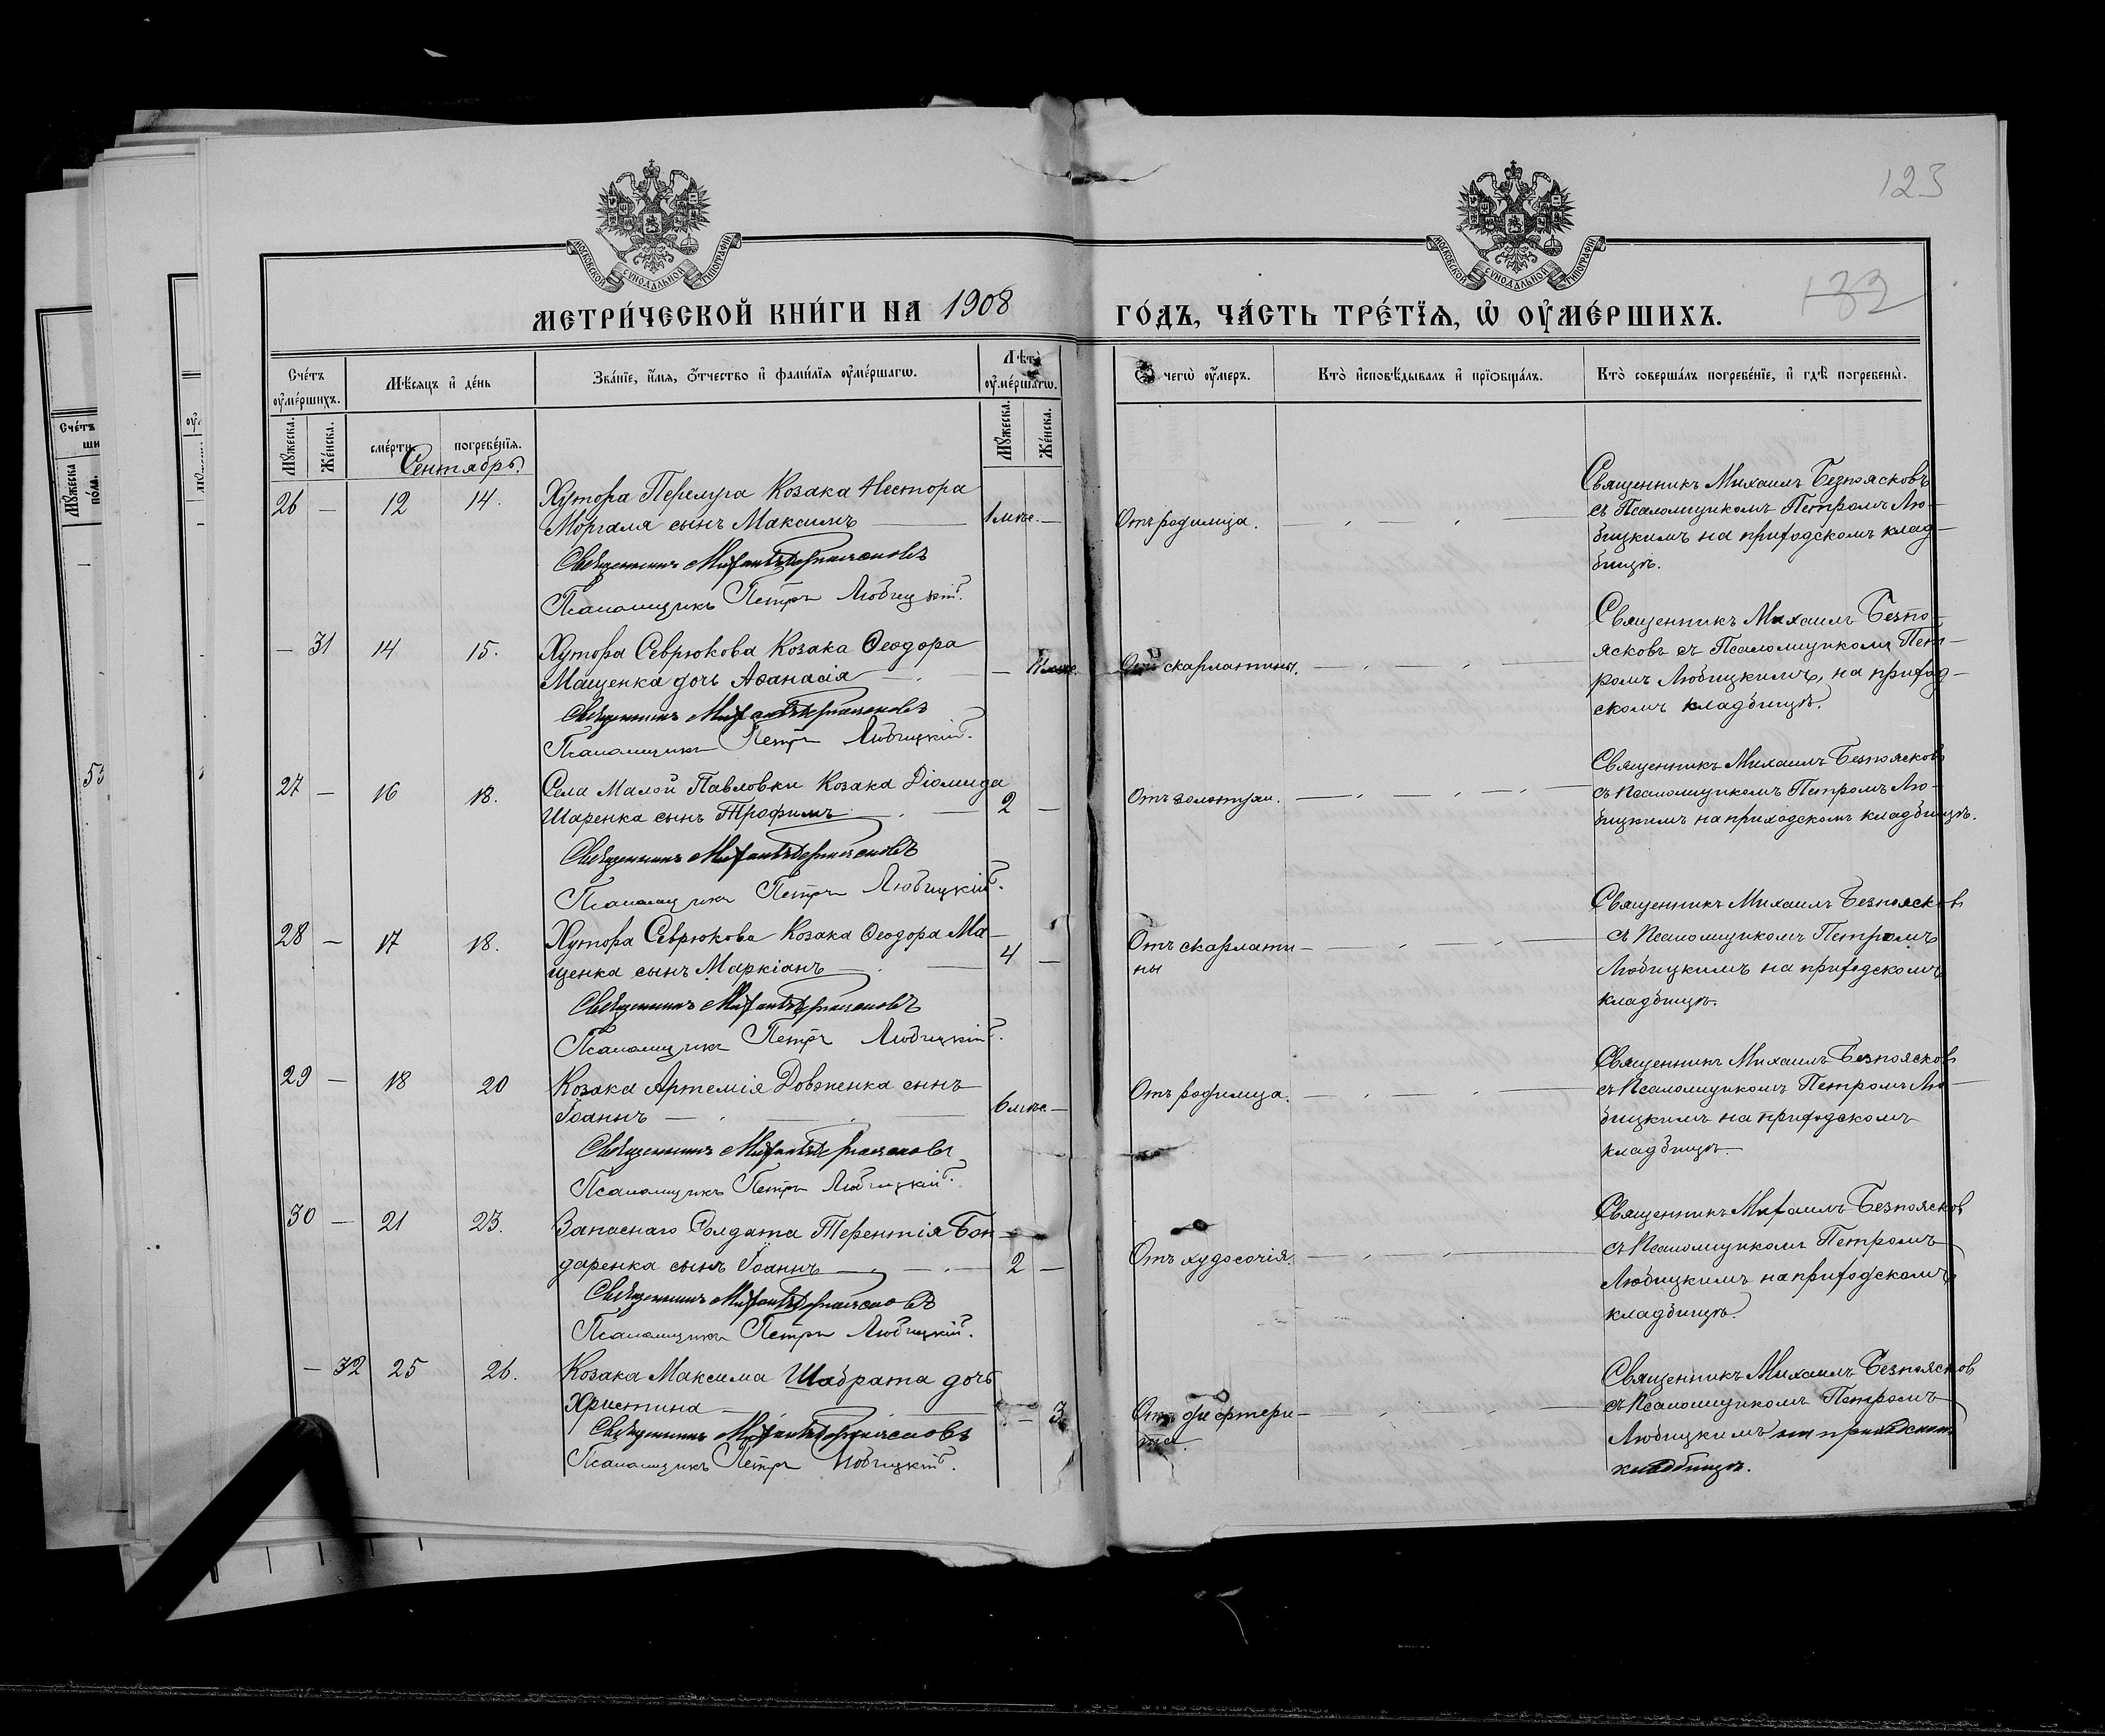 123
132
МОСКОВСКОЙ СУНОДАЛЬНОЙ ТИПОГРАФІИ
МОСКОВСКОЙ СУНОДАЛЬНОЙ ТИПОГРАФІИ
МЕТРИ́ЧЕСКОЙ КНИ́ГИ НА 1908 ГО́ДЪ, ЧА́СТЬ ТРЕ́ТЇѦ, Ѡ҆ ОУ҆МЕ́РШИХЪ.
Сче́тъ оу҆ме́ршихъ.
Мѣ́сяцъ и҆ де́нь
Зва́нїе, и҆́мѧ, ѻ҆́тчество и҆ фами́лїѧ оу҆ме́ршагѡ.
Лѣ́та̀ оу҆ме́ршагѡ.
чегѡ̀ оу҆́меръ.
Кто̀ и҆сповѣ́дывалъ и҆ прїѡбща́лъ.
Кто̀ соверша́лъ погребе́нїе, и҆ гдѣ̀ погребены̀.
Мꙋ́жеска.
Же́нска.
сме́рти.
погребе́нїѧ.
Мꙋ́жеска.
Же́нска.
Сентябрь.
26 — 12 14. Хутора Перелуга Козака Нестора
Моргаля сынъ Максимъ — 1 мѣс. —
Священникъ Михаилъ Безпоясковъ
Псаломщикъ Петръ Любицкій.
Отъ родимца.
Священникъ Михаилъ Безпоясковъ
съ Псаломщикомъ Петромъ Лю-
бицкимъ на приходскомъ клад-
бищѣ.
— 31 14 15. Хутора Севрюкова Козака Ѳеодора
Мащенка дочь Аѳанасія —
Священникъ Михаилъ Безпоясковъ
Псаломщикъ Петръ Любицкій.
Отъ скарлатины.
Священникъ Михаилъ Безпо-
ясковъ съ Псаломщикомъ Пет-
ромъ Любицкимъ, на приход-
скомъ кладбищѣ.
27 — 16 18. Села Малой Павловки Козака Діомида
Шаренка сынъ Трофимъ — 2 —
Священникъ Михаилъ Безпоясковъ
Псаломщикъ Петръ Любицкій.
Отъ золотухи.
Священникъ Михаилъ Безпоясковъ
съ Псаломщикомъ Петромъ Лю-
бицкимъ на приходскомъ кладбищѣ.
28 — 17 18. Хутора Севрюкова Козака Ѳеодора Ма-
щенка сынъ Маркіанъ — 4 —
Священникъ Михаилъ Безпоясковъ
Псаломщикъ Петръ Любицкій.
Отъ скарлати-
ны
Священникъ Михаилъ Безпоясков
съ Псаломщикомъ Петромъ
Любицкимъ на приходскомъ
кладбищѣ.
29 — 18 20 Козака Артемія Довженка сынъ
Іоаннъ — 6 мѣс. —
Священникъ Михаилъ Безпоясковъ
Псаломщикъ Петръ Любицкій.
Отъ родимца.
Священникъ Михаилъ Безпоясков
съ Псаломщикомъ Петромъ Лю-
бицкимъ на приходскомъ
кладбищѣ.
30 — 21 23. Запаснаго Солдата Терентія Бон-
даренка сынъ Іоаннъ — 2 —
Священникъ Михаилъ Безпоясковъ
Псаломщикъ Петръ Любицкій.
Отъ худосочія.
Священникъ Михаилъ Безпоясков
съ Псаломщикомъ Петромъ
Любицкимъ на приходскомъ
кладбищѣ.
— 32 25 26. Козака Максима Шабрата дочь
Христина — 3
Священникъ Михаилъ Безпоясковъ
Псаломщикъ Петръ Любицкій.
Отъ дифтери-
та.
Священникъ Михаилъ Безпоясков
съ Псаломщикомъ Петромъ
Любицкимъ на приходском
кладбищѣ.